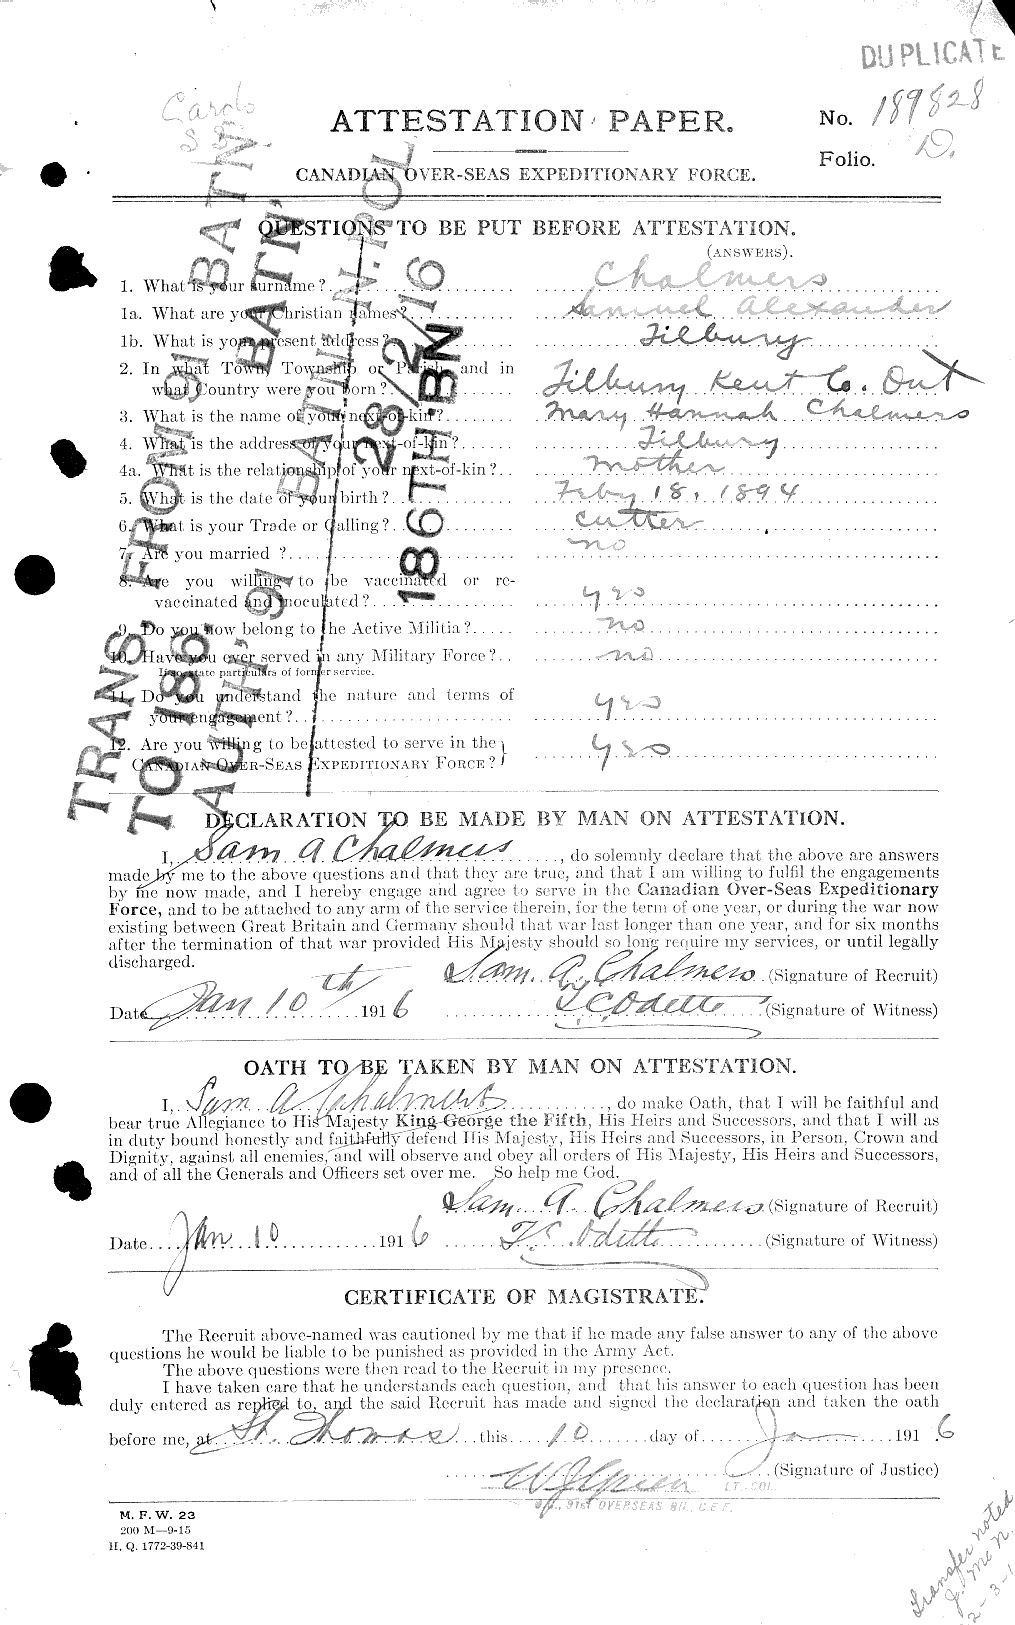 DUPLICATE
Cards
ATTESTATION PAPER.
No. 189828
D.
Folio.
CANADIAN OVER-SEAS EXPEDITIONARY FORCE.
QUESTIONS TO BE PUT BEFORE ATTESTATION.
(ANSWERS).
1. What is your surname? Chalmers
1a. What are your Christian names? Samuel Alexander
1b. What is your present address? Tilbury
2. In what Town, Township or Parish, and in
what Country were you born? Tilbury Kent Co. Ont
3. What is the name of your next-of-kin? Mary Hannah Chalmers
4. What is the address of your next-of-kin? Tilbury
4a. What is the relationship of your next-of-kin? mother
5. What is the date of your birth? Feby 18, 1894
6. What is your Trade or Calling? cutter
7. Are you married? no
8. Are you willing to be vaccinated or re-
vaccinated and inoculated? yes
9. Do you now belong to the Active Militia? no
10. Have you ever served in any Military Force? no
If so, state particulars of former service.
11. Do you understand the nature and terms of
your engagement? yes
12. Are you willing to be attested to serve in the
CANADIAN OVER-SEAS EXPEDITIONARY FORCE? yes
TRANS. FROM 91 BATN
TO 186 BATN'
AUTH' 91 BATN N. ROL
28/2/16
186TH BN
DECLARATION TO BE MADE BY MAN ON ATTESTATION.
I, Sam A Chalmers, do solemnly declare that the above are answers
made by me to the above questions and that they are true, and that I am willing to fulfil the engagements
by me now made, and I hereby engage and agree to serve in the Canadian Over-Seas Expeditionary
Force, and to be attached to any arm of the service therein, for the term of one year, or during the war now
existing between Great Britain and Germany should that war last longer than one year, and for six months
after the termination of that war provided His Majesty should so long require my services, or until legally
discharged.
Sam. A. Chalmers (Signature of Recruit)
Date Jan 10th 1916 T.C. Odette (Signature of Witness)
OATH TO BE TAKEN BY MAN ON ATTESTATION.
I, Sam A Chalmers, do make Oath, that I will be faithful and
bear true Allegiance to His Majesty King George the Fifth, His Heirs and Successors, and that I will as
in duty bound honestly and faithfully defend His Majesty, His Heirs and Successors, in Person, Crown and
Dignity, against all enemies, and will observe and obey all orders of His Majesty, His Heirs and Successors,
and of all the Generals and Officers set over me. So help me God.
Sam. A. Chalmers (Signature of Recruit)
Date Jan 10 1916 T.C. Odette (Signature of Witness)
CERTIFICATE OF MAGISTRATE.
The Recruit above-named was cautioned by me that if he made any false answer to any of the above
questions he would be liable to be punished as provided in the Army Act.
The above questions were then read to the Recruit in my presence.
I have taken care that he understands each question, and that his answer to each question has been
duly entered as replied to, and the said Recruit has made and signed the declaration and taken the oath
before me, at St. Thomas this 10 day of Ja 1916
(Signature of Justice)
LT. COL.
91st OVERSEAS BN., C.E.F.
M. F. W. 23
200 M—9-15
H. Q. 1772-39-841
Transfer noted
J. McN.
2-3-1